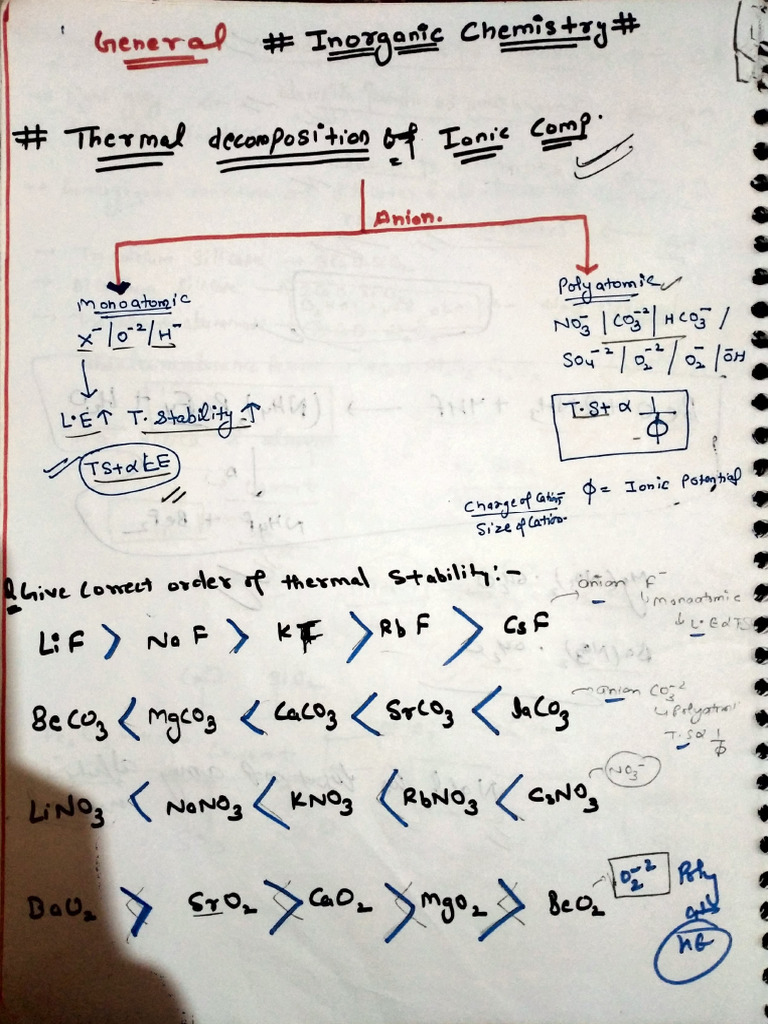 General # Inorganic Chemistry #
# Thermal decomposition of Ionic Comp.
Anion.
Monoatomic
X⁻ | O⁻² | H⁻
L.E ↑ T. Stability ↑
TS ∝ LE
Polyatomic
NO₃⁻ | CO₃⁻² | HCO₃⁻ /
SO₄⁻² | O₂⁻² | O₂⁻ | ŌH
T.St ∝ 1/ϕ
ϕ = Ionic Potential
Charge of Cation
Size of Cation
Q Give Correct order of thermal Stability:-
LiF > NaF > KF > RbF > CsF
anion F⁻
monoatomic
L.E ∝ TS
BeCO₃ < MgCO₃ < CaCO₃ < SrCO₃ < BaCO₃
anion CO₃⁻²
Polyatomi
T.S ∝ 1/ϕ
LiNO₃ < NaNO₃ < KNO₃ < RbNO₃ < CsNO₃
NO₃⁻
BaO₂ > SrO₂ > CaO₂ > MgO₂ > BeO₂
O₂⁻²
Poly